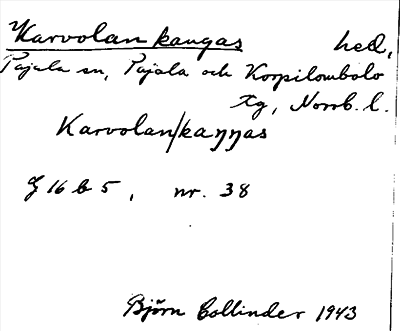 Karvolan kangas hed,
Pajala sn, Pajala och Korpilombolo
tg, Norrb. l.
Karvolan/kaŋŋas
J 16 b 5, nr. 38
Björn Collinder 1943